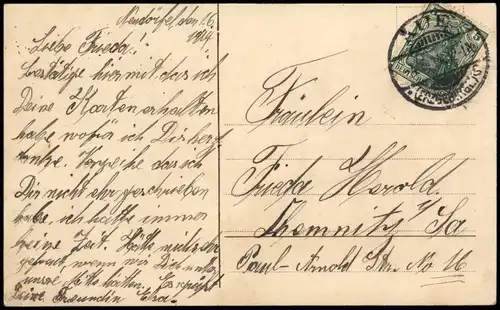 Neudörfel den 1.6.
1914.
Liebe Frieda!
bestätige hiermit das ich
Deine Karten erhalten
habe wofür ich Dir herz.
danke. Verzeihe das ich
Dir nicht ehr geschrieben
habe, ich hatte immer
keine Zeit. Hätte mich sehr
gefreut, wenn wir Dich
unsre hätten. Es grüßt
Deine Freundin Elsa.
AUE
Fräulein
Frieda Herold.
Chemnitz i/ Sa
Paul-Arnold Str. No 16